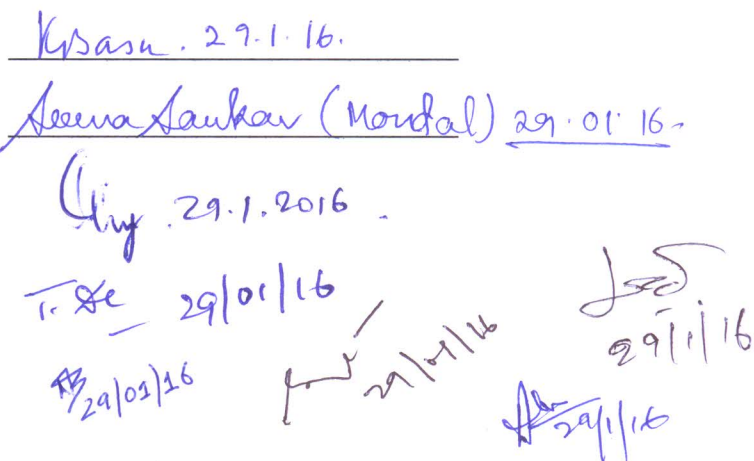 KBasu. 29.1.16.
Seema Sarkar (Mondal) 29.01.16.
29.1.2016.
T. De 29/01/16
29/1/16
29/01/16
29/01/16
29/1/16